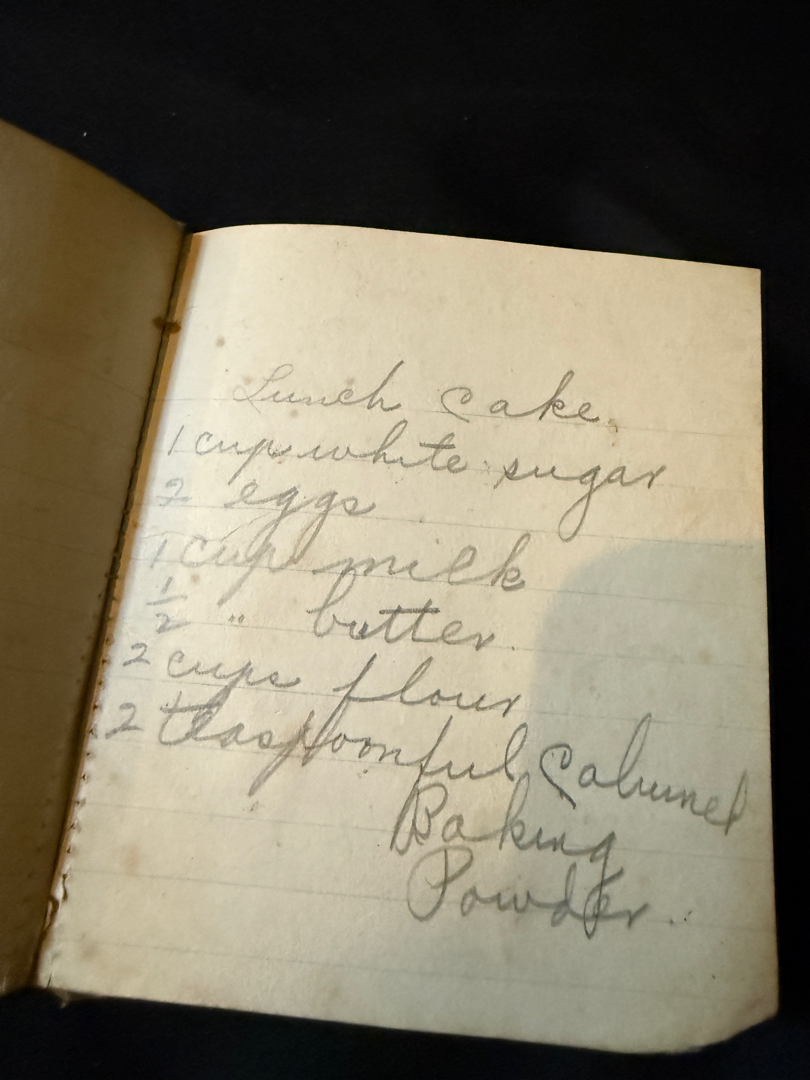 Lunch Cake.
1 cup white sugar
2 eggs
1 cup milk
1/2 " butter.
2 cups flour
2 teaspoonful Calumel
Baking
Powder.